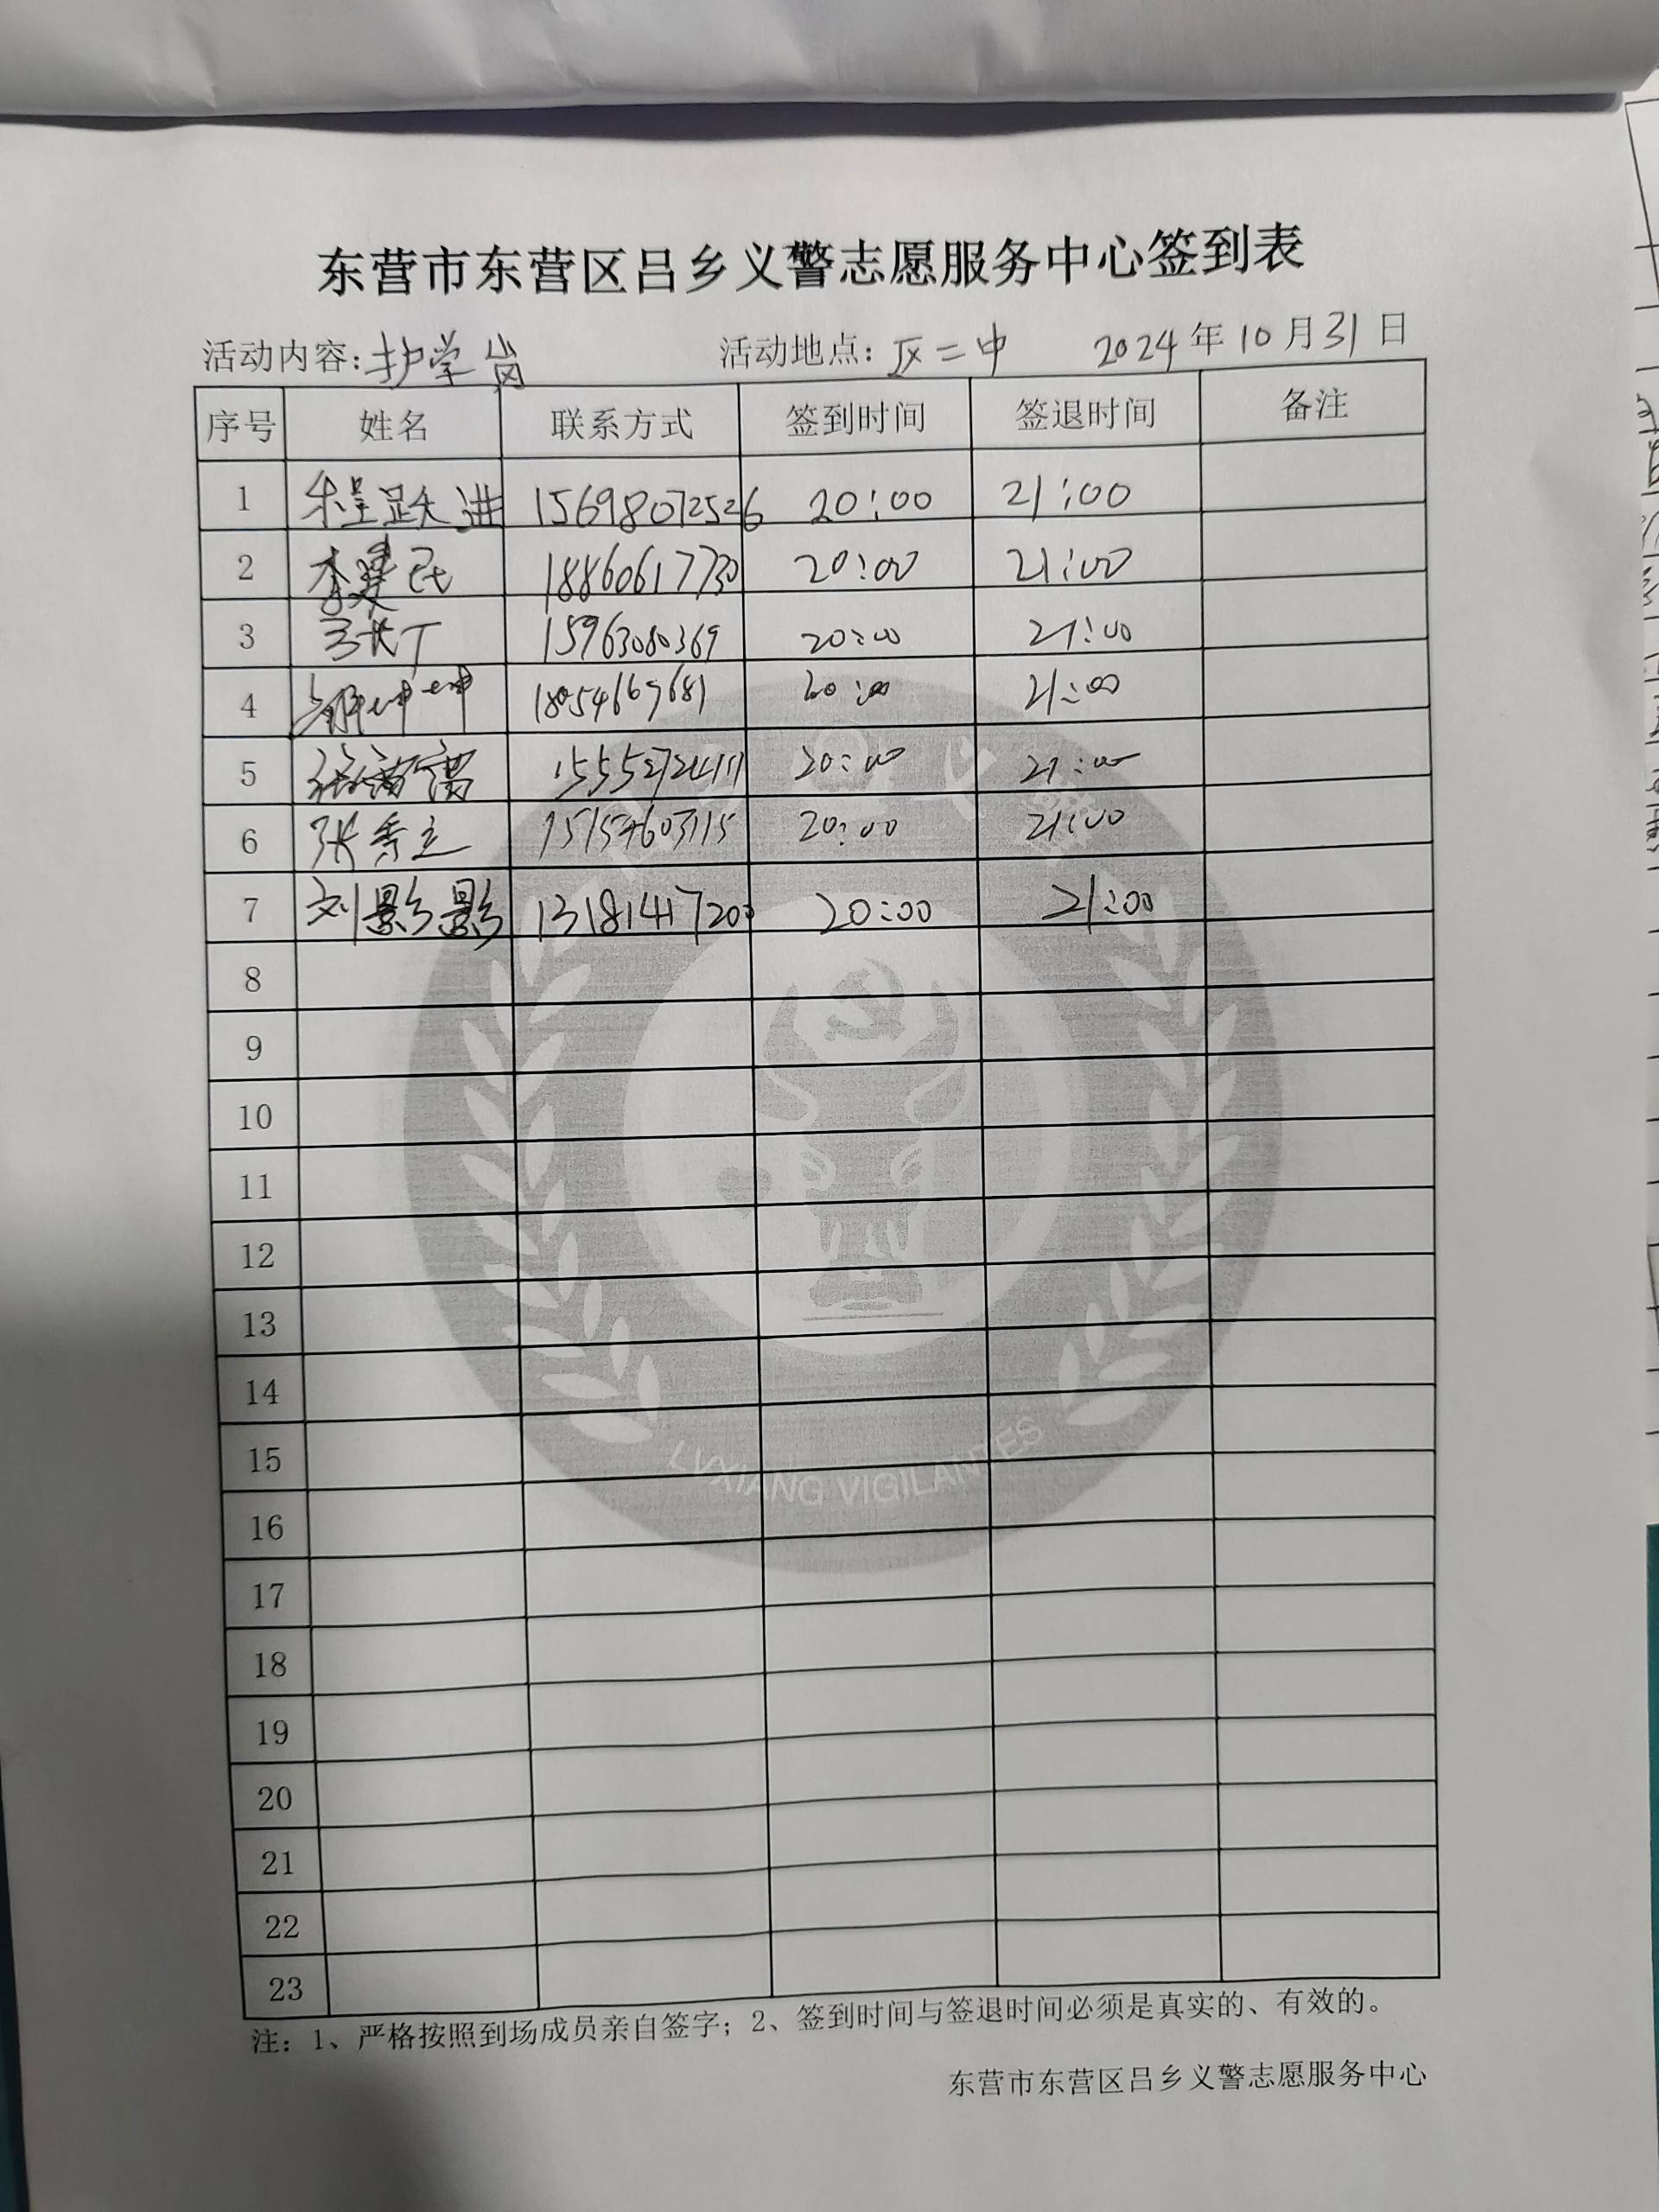 东营市东营区吕乡义警志愿服务中心签到表
活动内容:护学岗 活动地点:区二中 2024年10月31日
序号 姓名 联系方式 签到时间 签退时间 备注
1 程跃进 15698072526 20:00 21:00
2 李建民 18860617730 20:00 21:00
3 15963080369 20:00 21:00
4 20:00 21:00
5 20:00 21:00
6 张秀立 20:00 21:00
7 刘影影 13181417200 20:00 21:00
8
9
10
11
12
13
14
15
16
17
18
19
20
21
22
23
LVXIANG VIGILANTES
注:1、严格按照到场成员亲自签字;2、签到时间与签退时间必须是真实的、有效的。
东营市东营区吕乡义警志愿服务中心